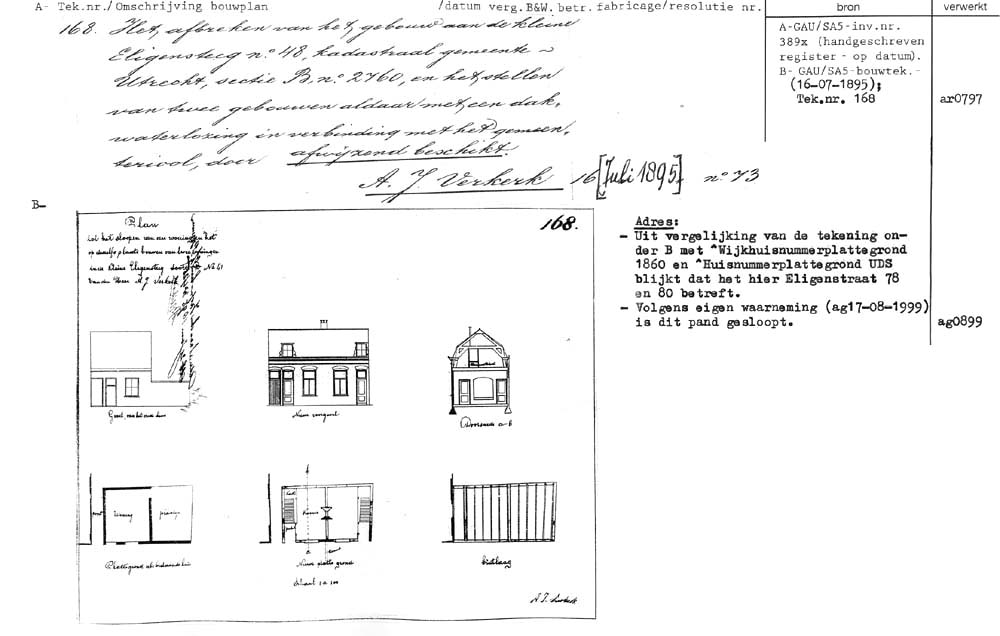 A- Tek.nr./Omschrijving bouwplan /datum verg.B&W.betr.fabricage/resolutie nr.
bron
verwerkt
168. Het, afbreken van het, gebouw aan de kleine
Eligensteeg no. 48, kadastraal gemeente
Utrecht, sectie B, no. 2760, en het, stellen
van twee gebouwen aldaar met, een dak,
waterlozing in verbinding met het gemeen,
teriool, door afwijzend beschikt.
A. J. Verkerk 16 [Juli 1895] no. 73
A-GAU/SA5-inv.nr.
389x (handgeschreven
register - op datum).
B- GAU/SA5-bouwtek.-
(16-07-1895);
Tek.nr. 168
ar0797
B-
168.
Plan
tot het sloopen van een woning en het
op dezelfde plaats bouwen van twee woningen
in de kleine Eligensteeg No 61
van den Heer A J Verkerk
Gevel, van het oude huis
Nieuwe voorgevel
Doorsnede a-b
woning
Plattegrond v/h bestaande huis
Kamer
Nieuwe platte grond
Schaal 1 a 100
A. J. Verkerk
Adres:
- Uit vergelijking van de tekening on-
der B met ^Wijkhuisnummerplattegrond
1860 en ^Huisnummerplattegrond UDS
blijkt dat het hier Eligenstraat 78
en 80 betreft.
- Volgens eigen waarneming (ag17-08-1999)
is dit pand gesloopt.
ag0899